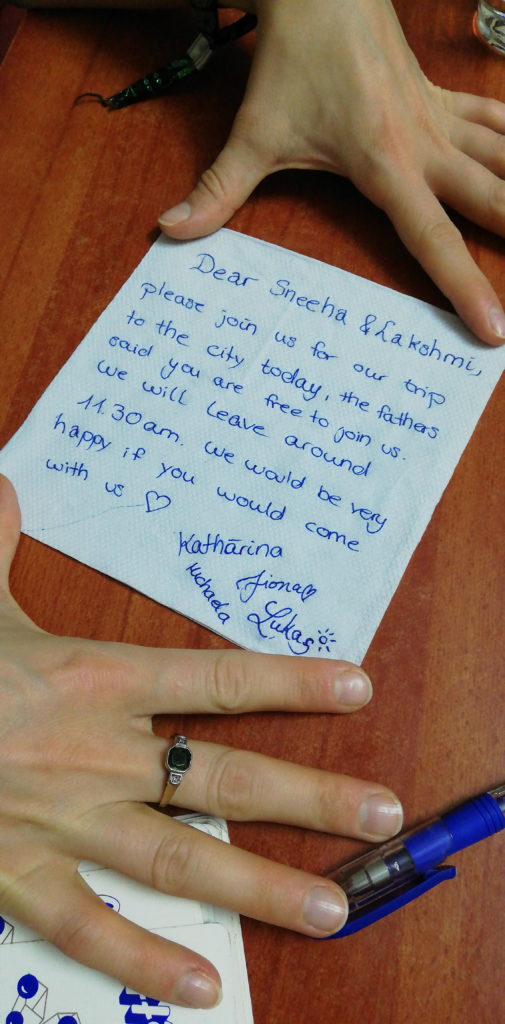 Dear Sneeha & Lakshmi,
please join us for our trip
to the city today, the fathers
said you are free to join us.
We will leave around
11.30am. We would be very
happy if you would come
with us ♡
Kathārina
Fiona♡
Michaela
Lukas